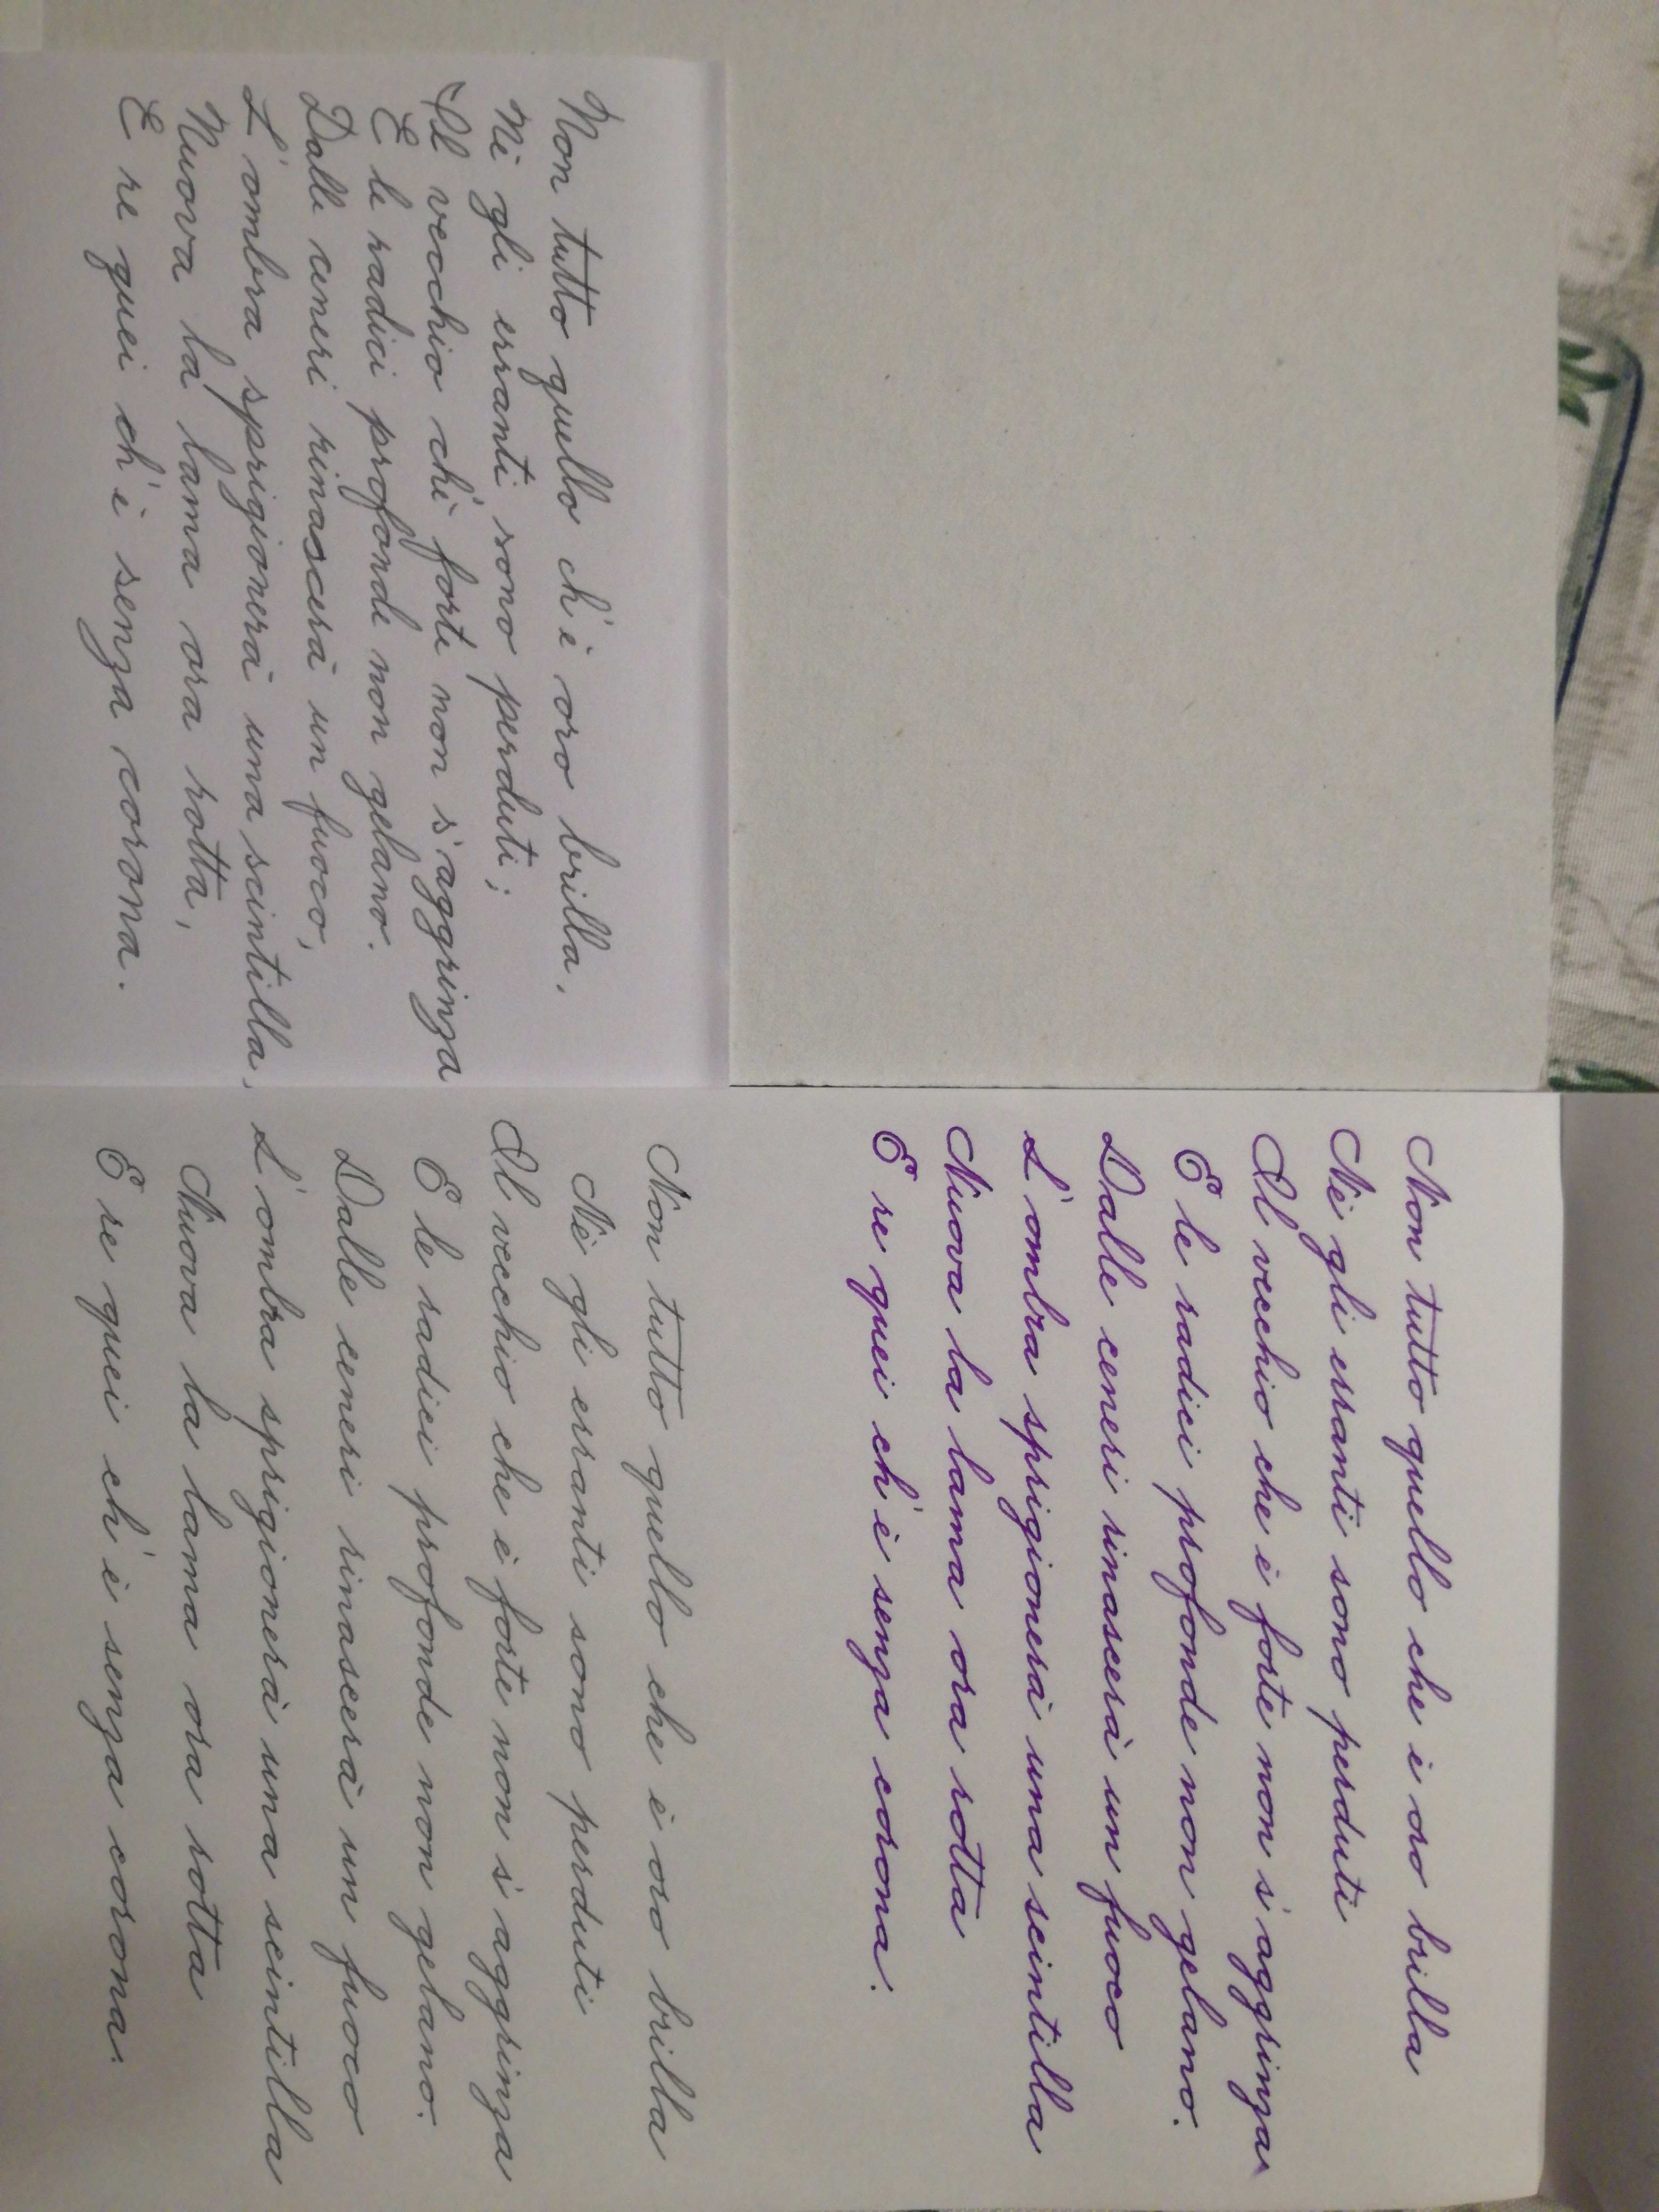 Non tutto quello che è oro brilla
Nè gli erranti sono perduti
Il vecchio che è forte non s'aggrinza
E le radici profonde non gelano.
Dalle ceneri rinascerà un fuoco
L'ombra sprigionerà una scintilla
Nuova la lama ora rotta
E re quei ch'è senza corona.
Non tutto quello ch'è oro brilla,
Nè gli erranti sono perduti;
Il vecchio ch'è forte non s'aggrinza
E le radici profonde non gelano.
Dalle ceneri rinascerà un fuoco,
L'ombra sprigionerà una scintilla,
Nuova la lama ora rotta,
E re quei ch'è senza corona.
Non tutto quello che è oro brilla
Nè gli erranti sono perduti
Il vecchio che è forte non s'aggrinza
E le radici profonde non gelano.
Dalle ceneri rinascerà un fuoco
L'ombra sprigionerà una scintilla
Nuova la lama ora rotta
E re quei ch'è senza corona.